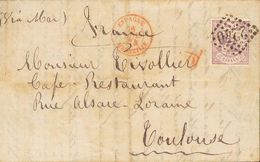 (Via Mar)
France
ESPAGNE
2240
Monsieur Crvollier
Café-Restaurant
Rue Alsace-Loraine
Toulouse